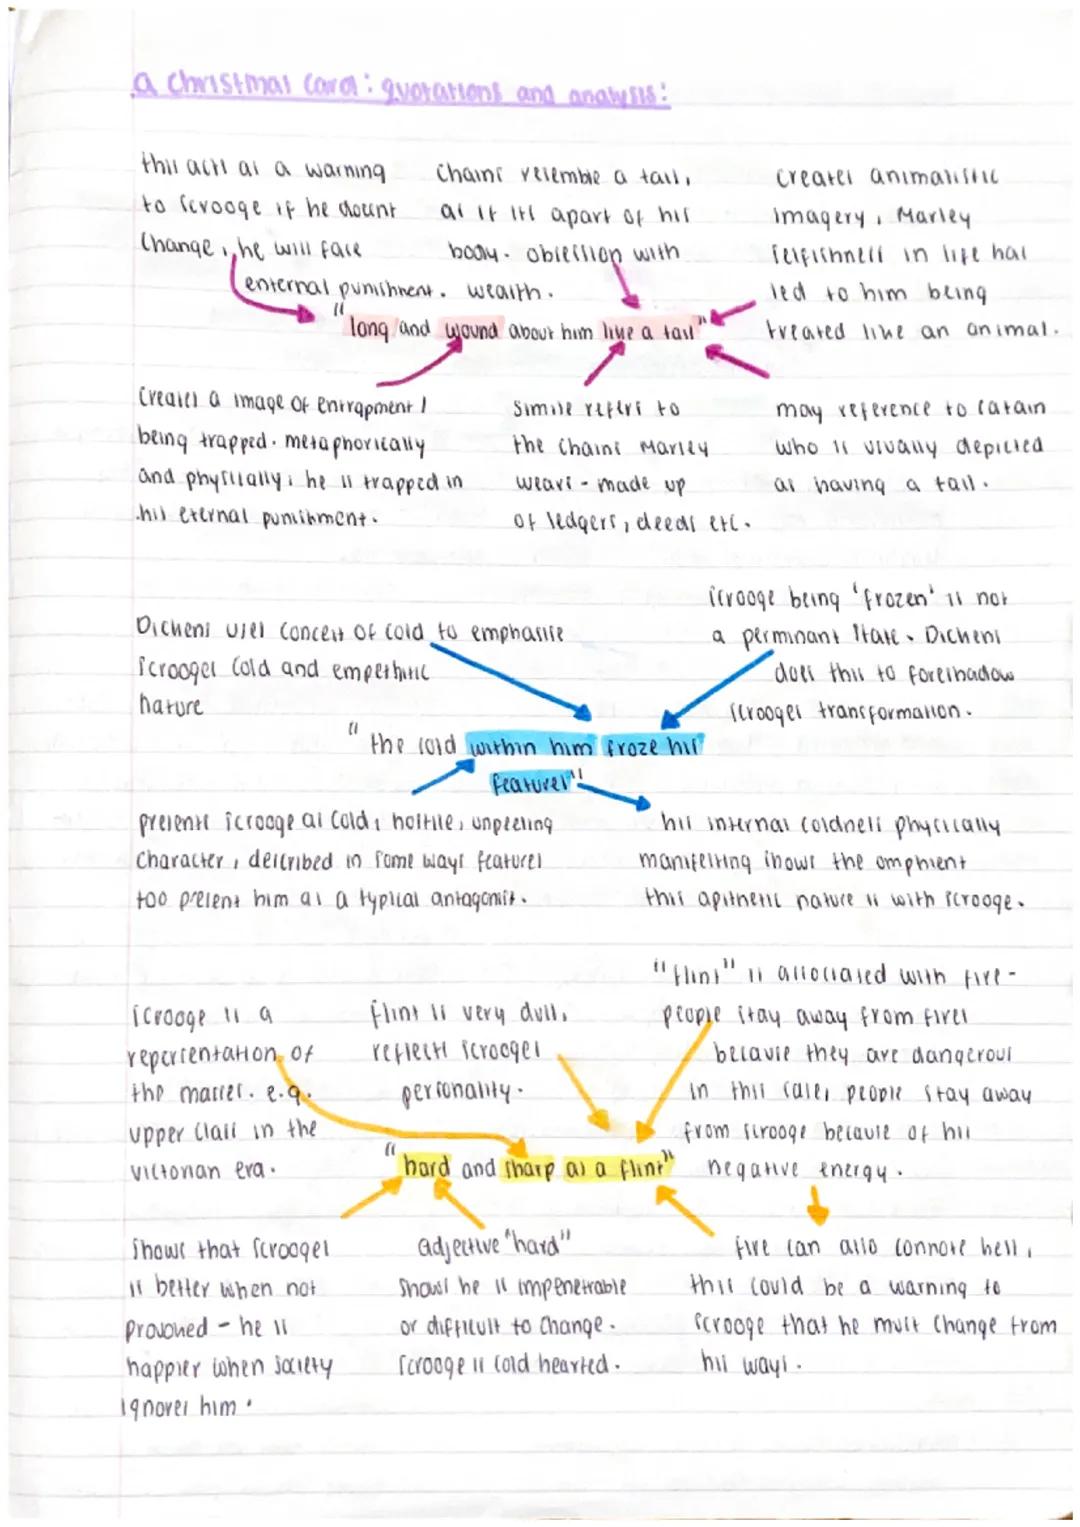 a Christmas Carol: quotations and analysis:
this acts as a warning
to Scrooge if he dosnt
Change, he will face
enternal punishment.
Chains resemble a tail,
as if its apart of his
body. obsession with
wealth.
creates animalistic
imagery, Marley
selfishness in life has
led to him being
treated like an animal.
"long and wound about him like a tail"
Creates a image of entrapment /
being trapped. metaphorically
and physically, he is trapped in
his eternal punishment.
Simile refers to
the chains Marley
wears - made up
of ledgers, deeds etc.
may reference to satain
who is usually depicted
as having a tail.
Dickens uses conceit of cold to emphasise
Scrooges cold and empethitic
nature
Scrooge being 'frozen' is not
a perminant state. Dickens
does this to foreshadow
Scrooges transformation.
"the cold within him froze his
features"
presents Scrooge as cold, hostile, unpeeling
character, described in some ways features
too present him as a typical antagonist.
his internal coldness physically
manifesting shows the omphient
this apithetic nature is with Scrooge.
Scrooge is a
repersentation of
the masses. e.g.
upper class in the
victorian era.
flint is very dull,
reflects Scrooges
personality.
"flint" is associated with fire-
people stay away from fires
because they are dangerous
in this case, people stay away
from scrooge because of his
negative energy.
"hard and sharp as a flint"
Shows that Scrooges
is better when not
provoked - he is
happier when society
ignores him.
adjective "hard"
Shows he is impenetrable
or difficult to change.
Scrooge is cold hearted.
fire can also connote hell,
this could be a warning to
Scrooge that he must change from
his ways.